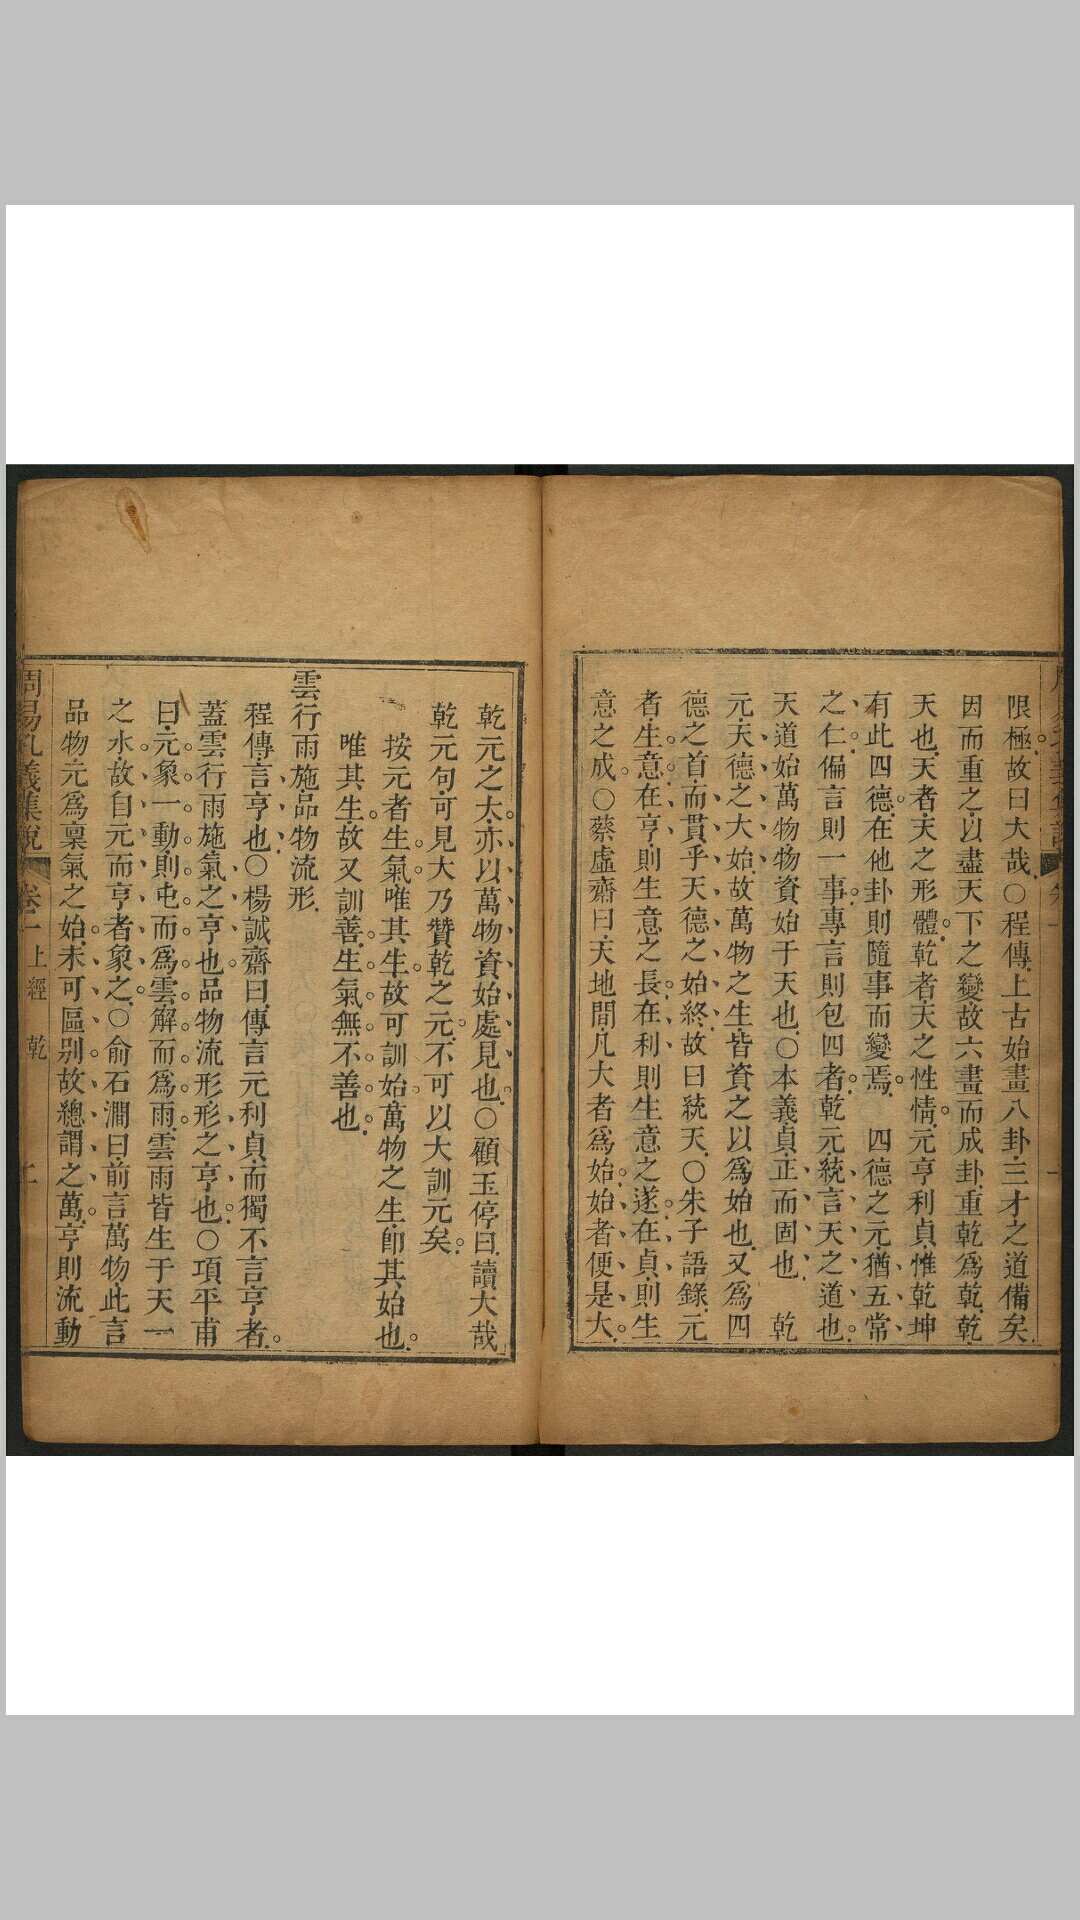 限極故曰大哉○程傳上古始畫八卦三才之道備矣
因而重之以盡天下之變故六畫而成卦重乾爲乾乾
天也天者天之形體乾者天之性情元亨利貞惟乾坤
有此四德在他卦則隨事而變焉 四德之元猶五常
之仁偏言則一事專言則包四者乾元統言天之道也
天道始萬物物資始于天也○本義貞正而固也 乾
元天德之大始故萬物之生皆資之以爲始也又爲四
德之首而貫乎天德之始終故曰統天○朱子語錄元
者生意在亨則生意之長在利則生意之遂在貞則生
意之成○蔡虛齋曰天地間凡大者爲始始者便是大
乾元之大亦以萬物資始處見也○顧玉停曰讀大哉
乾元句可見大乃贊乾之元不可以大訓元矣
按元者生氣唯其生故可訓始萬物之生卽其始也
唯其生故又訓善生氣無不善也
雲行雨施品物流形
程傳言亨也○楊誠齋曰傳言元利貞而獨不言亨者
蓋雲行雨施氣之亨也品物流形形之亨也○項平甫
曰元象一動則屯而爲雲解而爲雨雲雨皆生于天一
之水故自元而亨者象之○俞石澗曰前言萬物此言
品物元爲稟氣之始未可區别故總謂之萬亨則流動
周易孔義集說 卷一 上經 乾